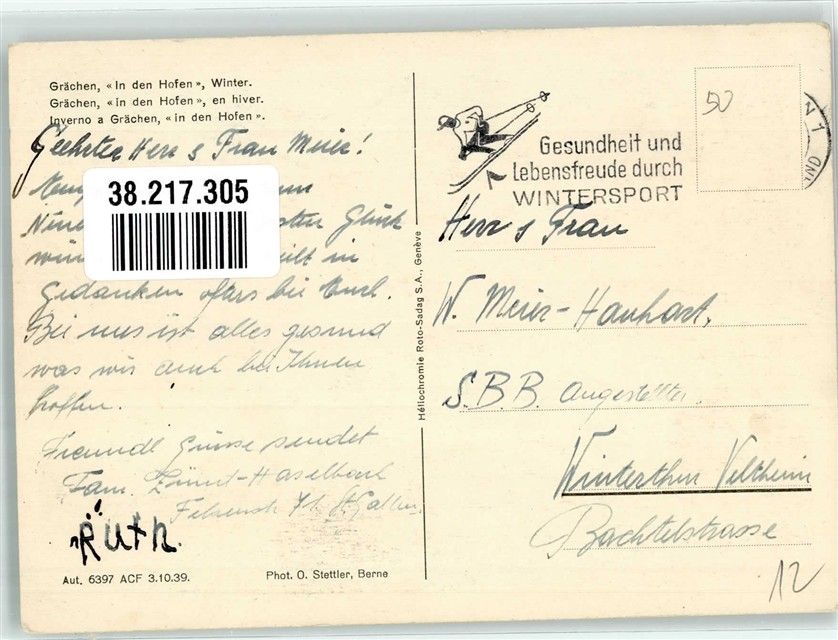 Grächen, « In den Hofen », Winter.
Grächen, « in den Hofen », en hiver.
Inverno a Grächen, « in den Hofen ».
Geehrter Herr & Frau Meier!
38.217.305
Glück
in
Gedanken öfters bei Euch.
Bei uns ist alles gesund
was wir auch bei Ihnen
hoffen.
Freundl Grüsse sendet
Fam. Zünd-Haselbach
St Gallen.
Ruth.
Aut. 6397 ACF 3.10.39.
Phot. O. Stettler, Berne
Héliochromie Roto-Sadag S.A., Genève
Gesundheit und
Lebensfreude durch
WINTERSPORT
50
Herr & Frau
W. Meier-Hanhart,
S.B.B. Angestellter.
Winterthur Veltheim
Bachtelstrasse
12